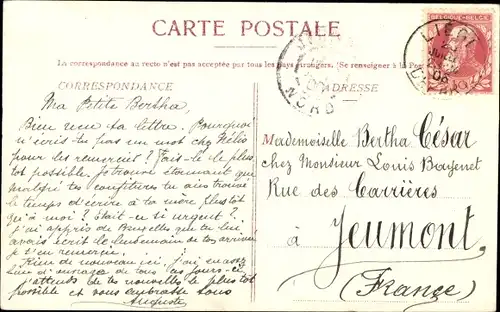 CARTE POSTALE
La correspondance au recto n'est pas acceptée par tous les pays étrangers. (Se renseigner à la Poste
CORRESPONDANCE
ADRESSE
BELGIQUE-BELGIË
NORD
Ma Petite Bertha,
Bien reçu ta lettre. Pourquoi
n'écris-tu pas un mot chez Hélio
pour les remercier? Fais-le le plus
tôt possible. Je trouve étonnant que
malgré tes confitures tu aies trouvé
le temps d'écrire à ta mère plus tôt
qu'à moi? Était-ce si urgent?
J'ai appris de Bruxelles que tu lui
avais écrit le lendemain de ton arrivée
je t'en remercie.
Rien de nouveau ici, j'ai
d'ouvrage de tous ces jours-ci
j'attends de tes nouvelles le plus tôt
possible et vous embrasse tous
Auguste
Mademoiselle Bertha César
chez Monsieur Louis Bayenet
Rue des Carrières
à Jeumont,
(France)